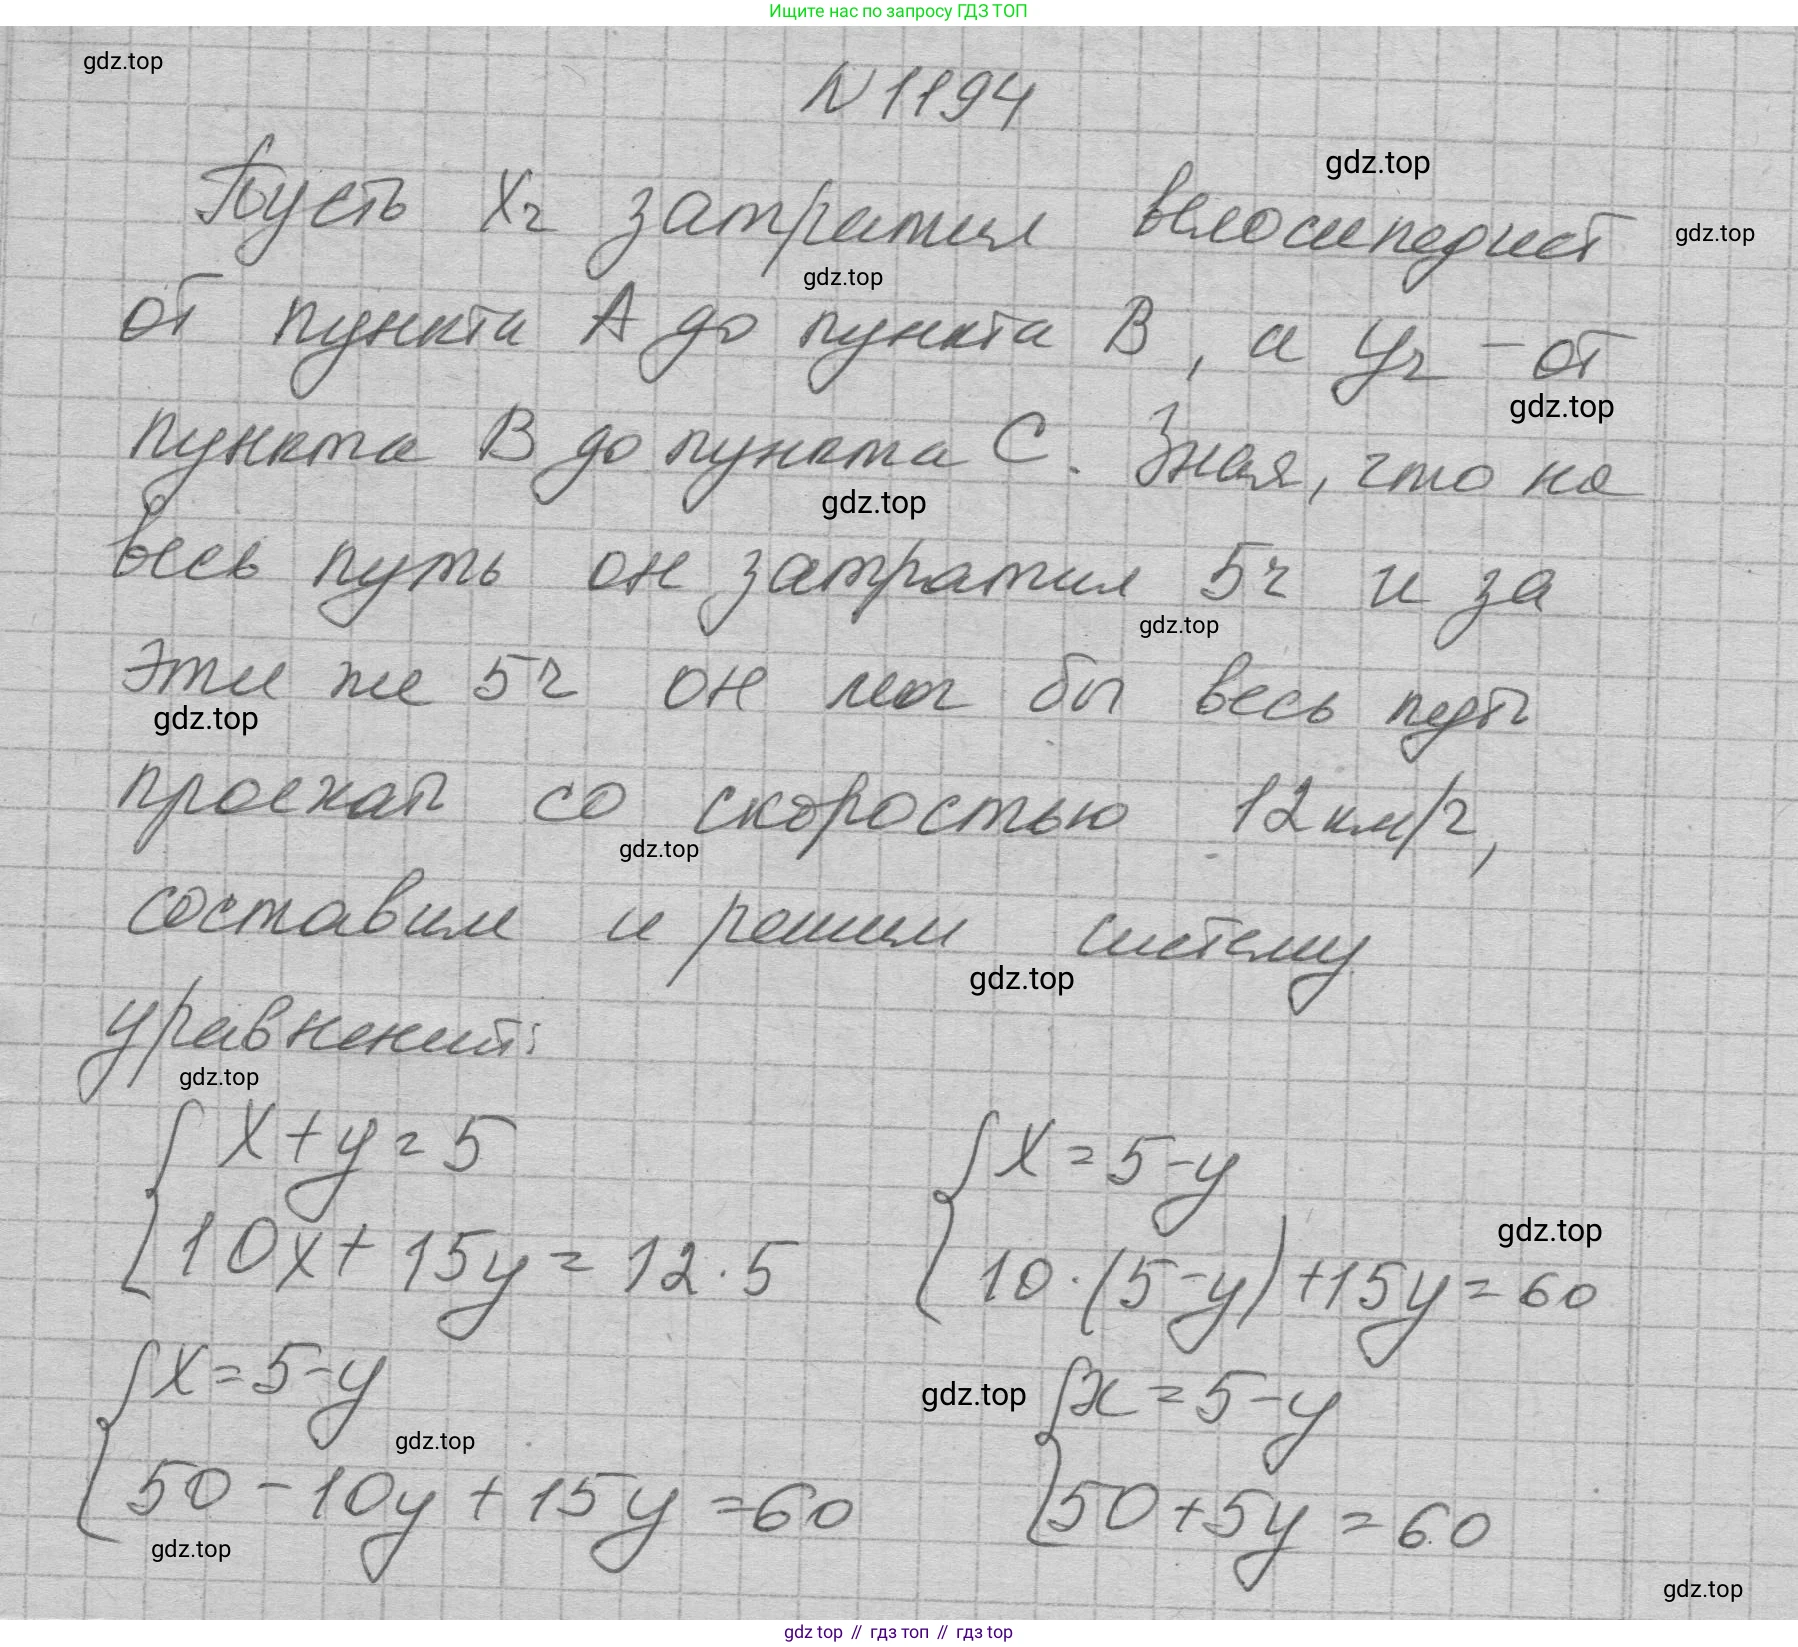 Ищите нас по запросу ГДЗ ТОП
gdz.top
N 1194
gdz.top
Пусть Xч затратил велосипедист
gdz.top
gdz.top
от пункта A до пункта B, а Yч - от
gdz.top
пункта B до пункта C. Зная, что на
gdz.top
весь путь он затратил 5ч и за
gdz.top
эти же 5ч он мог бы весь путь
gdz.top
проехать со скоростью 12км/ч,
gdz.top
составим и решим систему
gdz.top
уравнений:
gdz.top
{ x+y=5
{ 10x+15y=12·5
{ x=5-y
{ 10·(5-y)+15y=60
gdz.top
{ x=5-y
{ 50-10y+15y=60
gdz.top
gdz.top
gdz.top
{ x=5-y
{ 50+5y=60
gdz.top
gdz top // гдз топ // gdz top